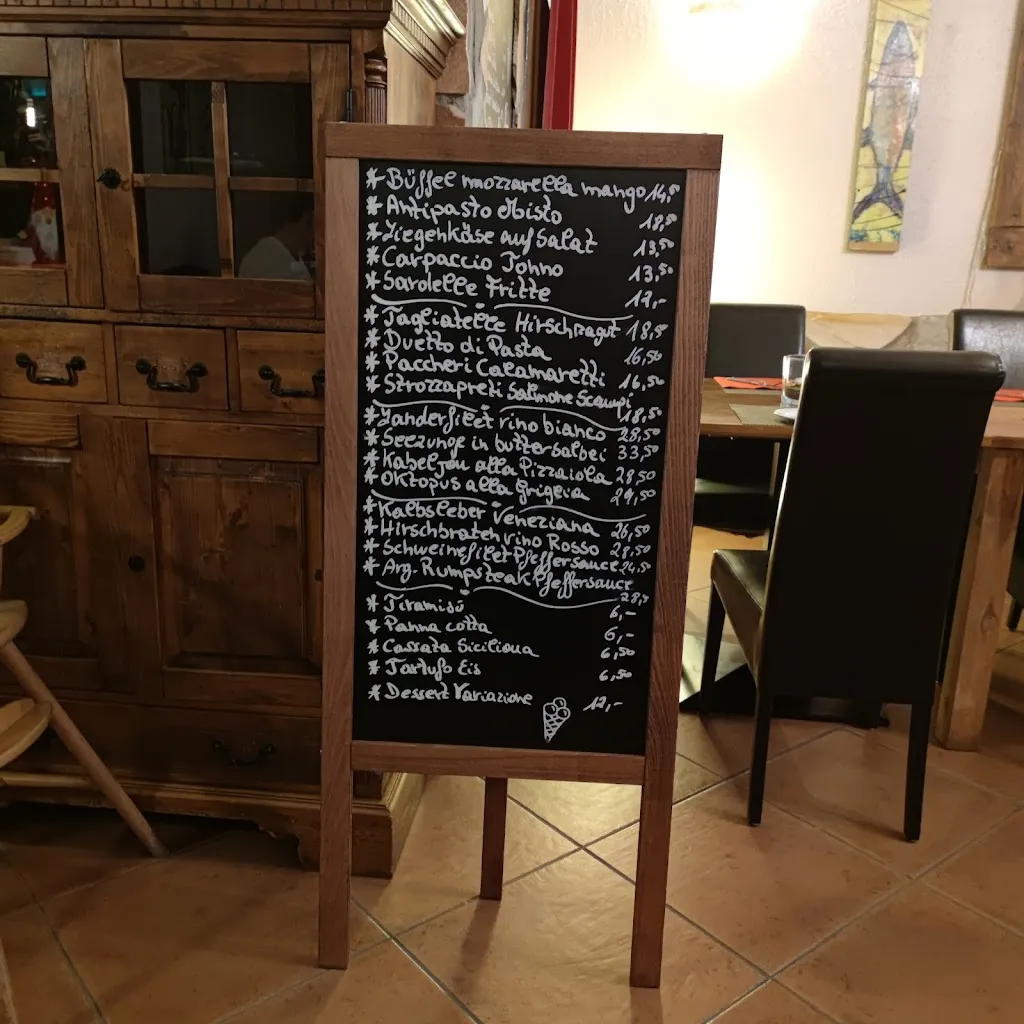 * Büffel mozzarella mango 14,5
* Antipasto Misto 18,50
* Ziegenkäse auf Salat 13,50
* Carpaccio Tonno 13,50
* Sardelle Fritte 12,-
* Tagliatelle Hirschragut 18,50
* Duetto di Pasta 16,50
* Paccheri Calamaretti 16,50
* Strozzapreti Salmone Scampi 18,50
* Zanderfilet vino bianco 28,50
* Seezunge in buttersalbei 33,50
* Kabeljau alla Pizzaiola 28,50
* Oktopus alla Griglia 29,50
* Kalbsleber Veneziana 26,50
* Hirschbraten vino Rosso 28,50
* Schweinefilet Pfeffersauce 24,50
* Arg. Rumpsteak Pfeffersauce 28,5
* Tiramisú 6,-
* Panna cotta 6,-
* Cassata Siciliana 6,50
* Tartufo Eis 6,50
* Dessert Variazione 12,-